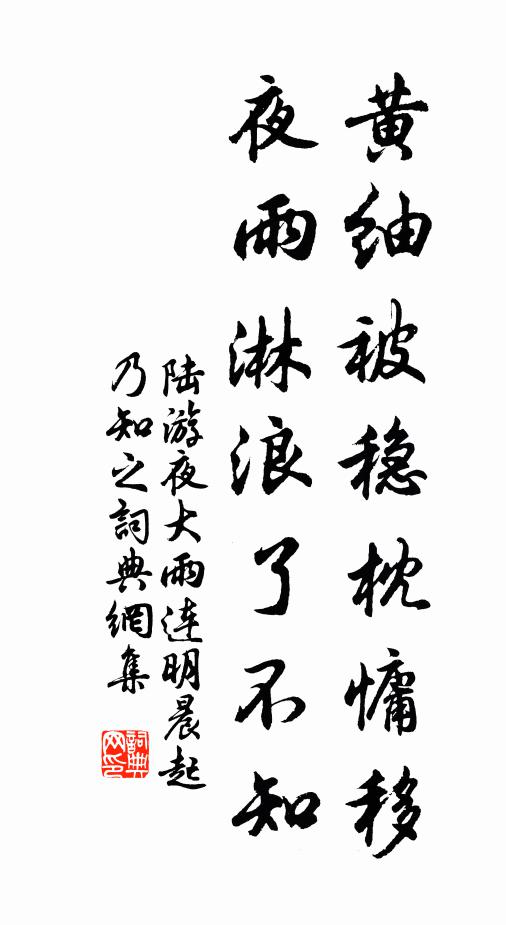 黄紬被稳枕慵移
夜雨淋浪了不知
陆游夜大雨连明晨起
乃知之詞典網集
詞典
网印